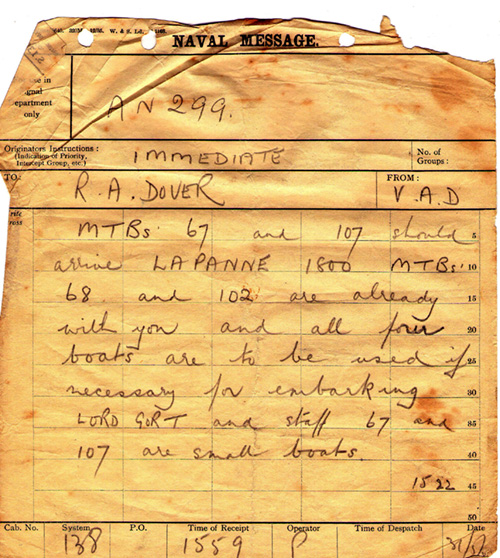 W. & S. Ld.
NAVAL MESSAGE.
se in
gnal
epartment
only
AN 299.
Originators Instructions :
(Indication of Priority,
Intercept Group, etc.)
IMMEDIATE
No. of
Groups :
TO:
R. A. DOVER
FROM :
V. A. D
rite
ross
MTBs' 67 and 107 should 5
arrive LAPANNE 1800 MTBs' 10
68 and 102 are already 15
with you and all four 20
boats are to be used if 25
necessary for embarking 30
LORD GORT and staff 67 and 35
107 are small boats. 40
1522 45
50
Cab. No. System P.O. Time of Receipt Operator Time of Despatch Date
138 1559 P 31/5